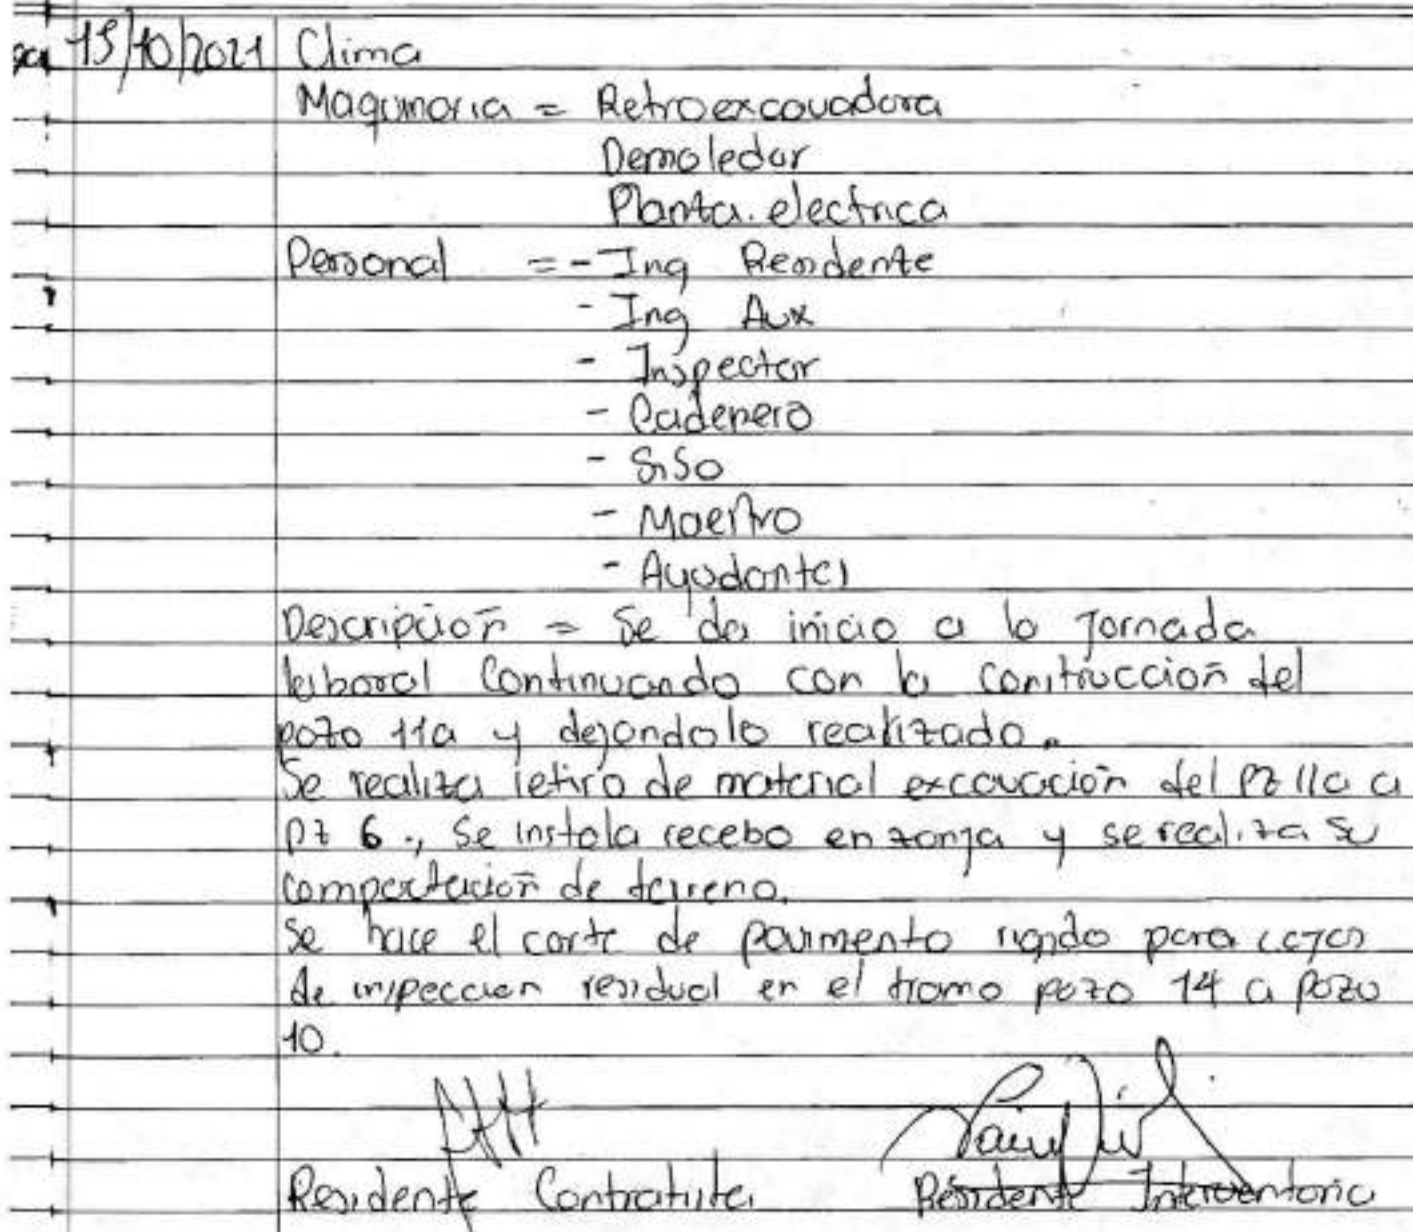 15/10/2021 Clima
Maquinaria = Retroexcavadora
Demoledor
Planta. electrica
Personal = - Ing Residente
- Ing Aux
- Inspector
- Cadenero
- SiSo
- Maestro
- Ayudantes
Descripción = Se da inicio a la Jornada
laboral Continuando con la construcción del
pozo 11a y dejandolo realizado.
Se realiza retiro de material excavación del Pz 11a a
pz 6., Se instala recebo en zanja y se realiza su
compactación de terreno.
Se hace el corte de pavimento rigido para cajas
de inspeccion residual en el tramo pozo 14 a pozo
10.
Residente Contratista Residente Interventoria